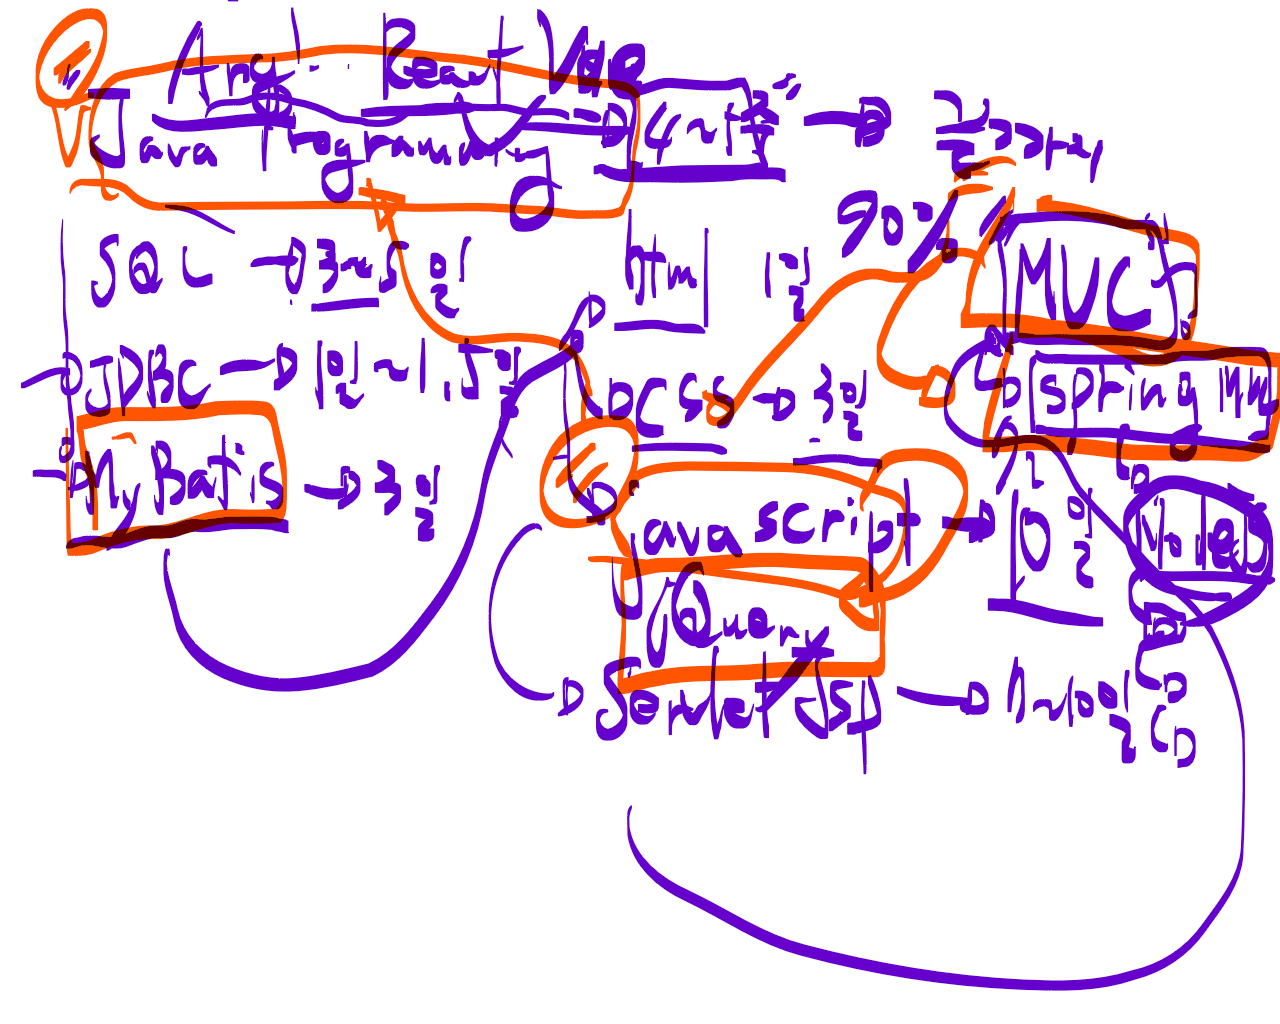 Ang React Vue
Java Programming
90%
SQL → 3~5일
html 1일
MVC
JDBC → 1일~1.5일
CSS → 3일
Spring
My Batis → 3일
Java script → 10일
Node JS
jQuery
Servlet JSP